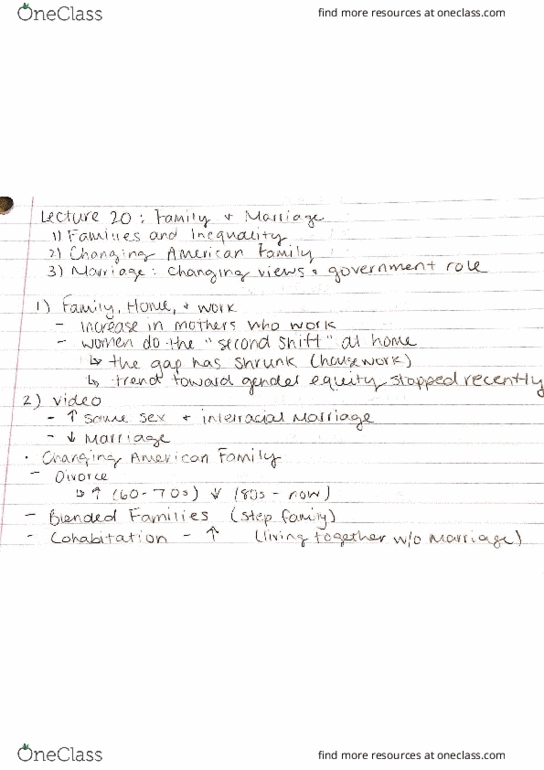 OneClass
find more resources at oneclass.com
Lecture 20 : Family + Marriage
1) Families and inequality
2) Changing American Family
3) Marriage : changing views + government role
1) Family, Home, + work
- increase in mothers who work
- women do the "second shift" at home
↳ the gap has shrunk (housework)
↳ trend toward gender equity stopped recently
2) video
- ↑ same sex + interracial marriage
- ↓ Marriage
• Changing American Family
- Divorce
↳ ↑ (60-70s) ↓ (80s - now)
- Blended Families (step family)
- Cohabitation - ↑ (living together w/o marriage)
OneClass
find more resources at oneclass.com